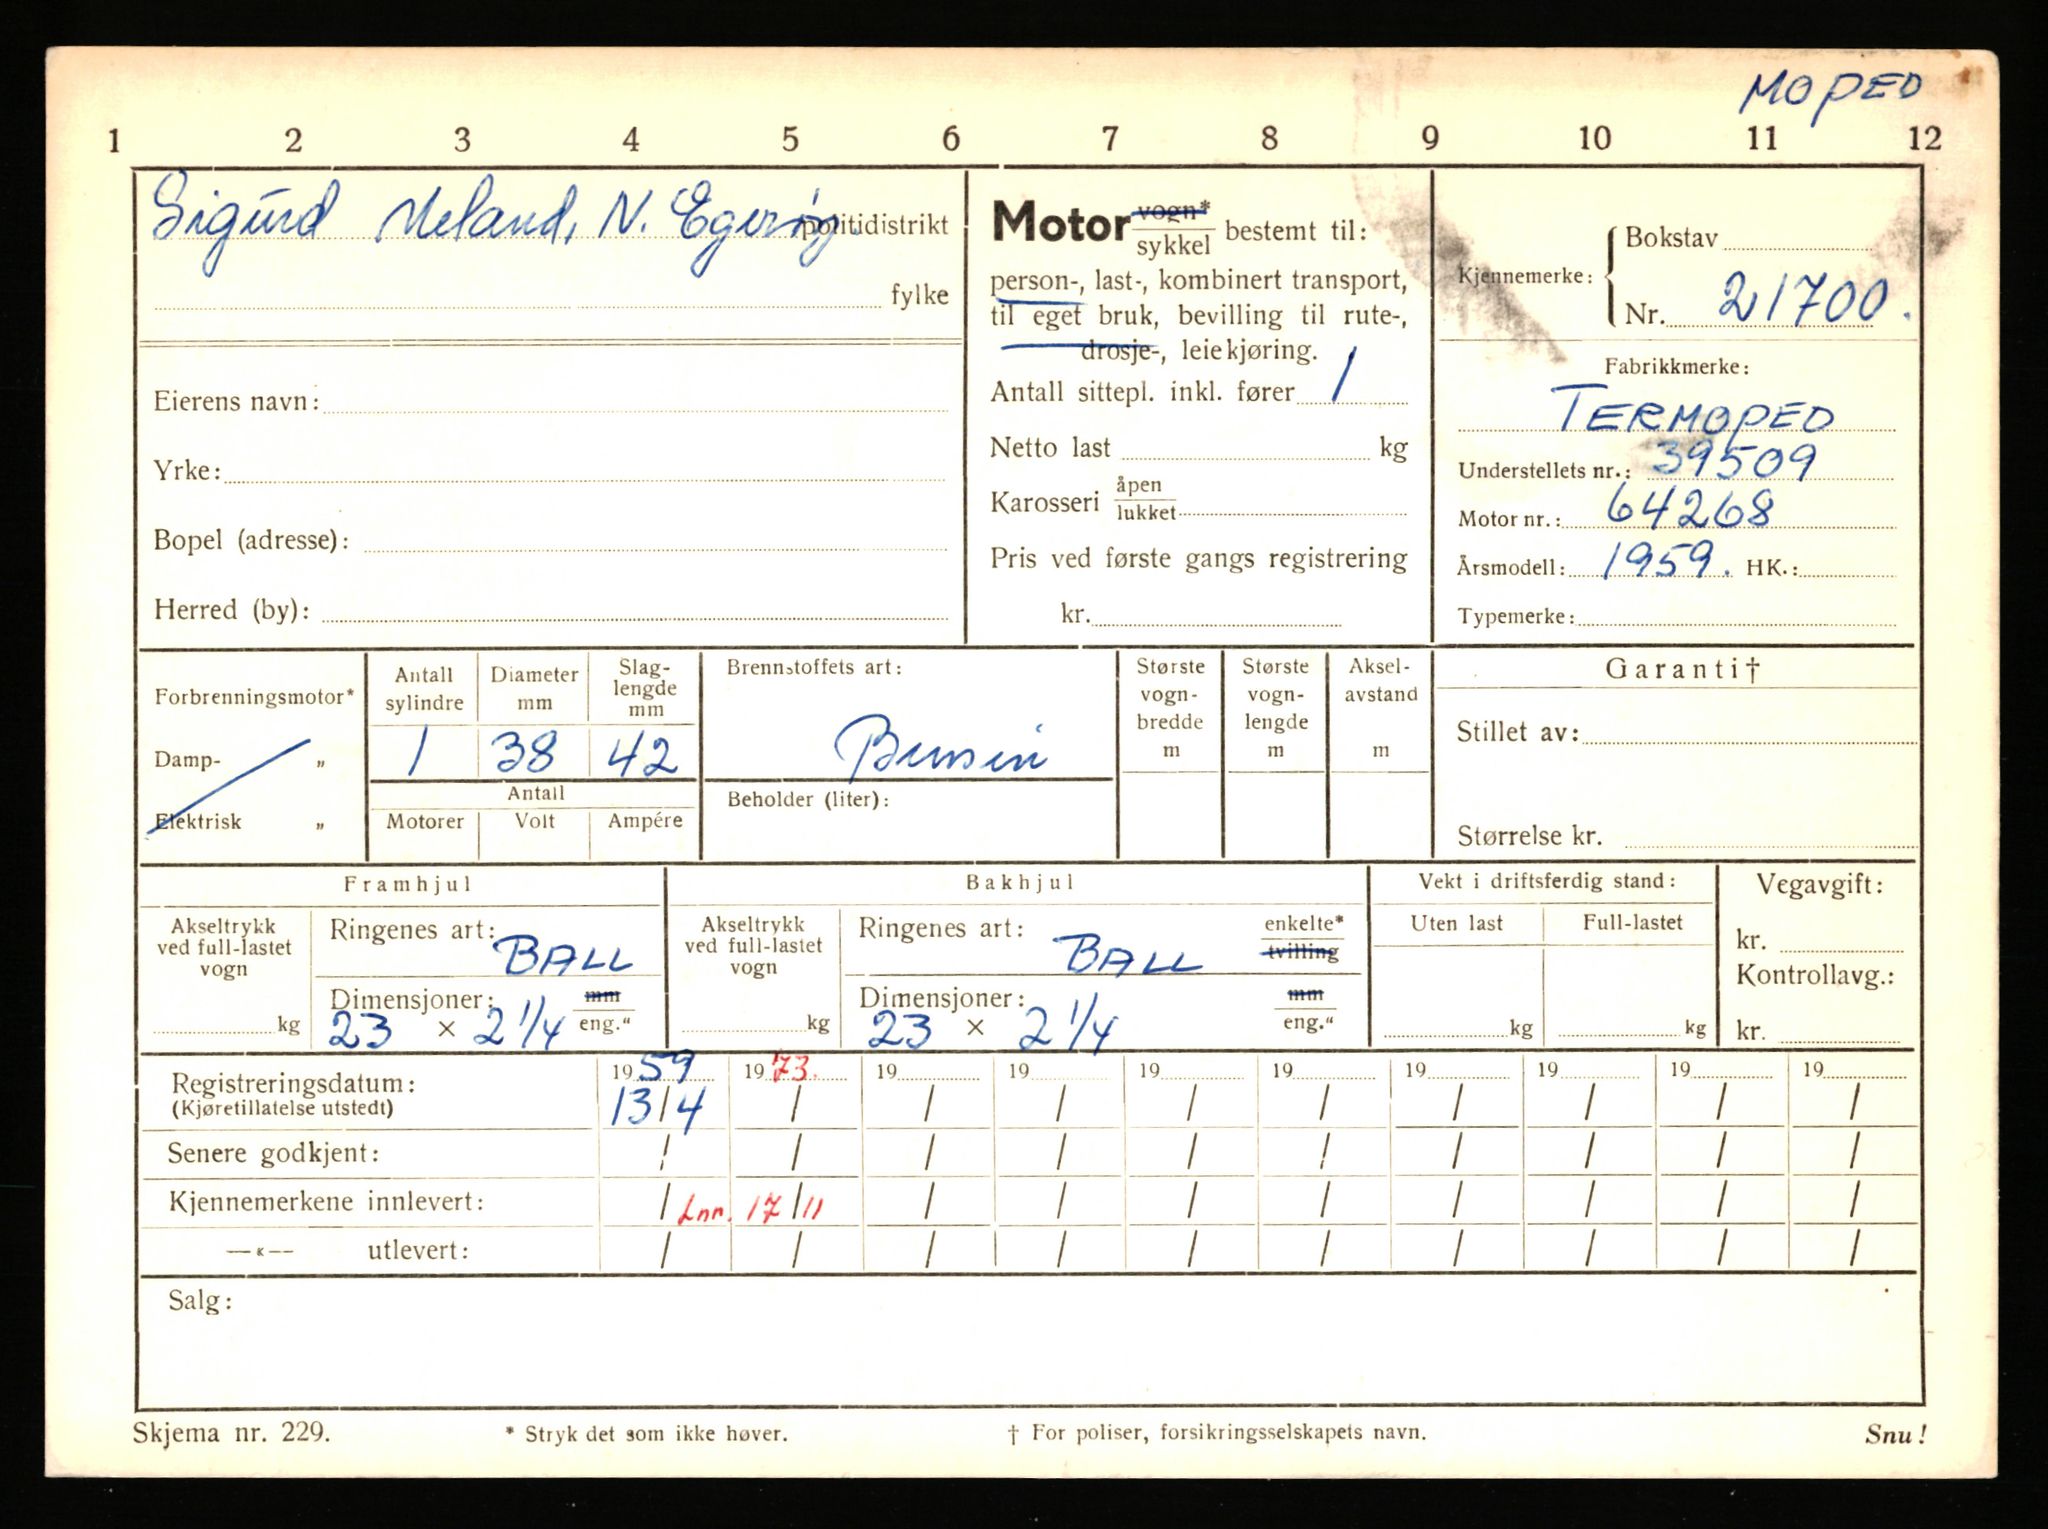 MOPED
1 2 3 4 5 6 7 8 9 10 11 12
Sigurd Meland, N. Egerøy. politidistrikt
fylke
Eierens navn:
Yrke:
Bopel (adresse):
Herred (by):
Motor vogn*
sykkel bestemt til:
person-, last-, kombinert transport,
til eget bruk, bevilling til rute-,
drosje-, leiekjøring.
Antall sittepl. inkl. fører 1
Netto last kg
Karosseri åpen
lukket
Pris ved første gangs registrering
kr.
Kjennemerke: Bokstav
Nr. 21700.
Fabrikkmerke:
TERMOPED
Understellets nr.: 39509
Motor nr.: 64268
Årsmodell: 1959. HK.:
Typemerke:
Forbrenningsmotor*
Damp- „
Elektrisk „
Antall sylindre 1
Diameter mm 38
Slag-lengde mm 42
Antall
Motorer Volt Ampére
Brennstoffets art:
Bensin
Beholder (liter):
Største vogn-bredde m
Største vogn-lengde m
Aksel-avstand m
Garanti†
Stillet av:
Størrelse kr.
Framhjul
Akseltrykk ved full-lastet vogn
kg
Ringenes art: BALL
Dimensjoner: mm
23 × 2 1/4 eng."
Bakhjul
Akseltrykk ved full-lastet vogn
kg
Ringenes art: BALL enkelte*
tvilling
Dimensjoner: mm
23 × 2 1/4 eng."
Vekt i driftsferdig stand:
Uten last Full-lastet
kg kg
Vegavgift:
kr.
Kontrollavg.:
kr.
Registreringsdatum: 1959 1973. 19 19 19 19 19 19 19 19
(Kjøretillatelse utstedt) 13/4 / / / / / / / / /
Senere godkjent: / / / / / / / / / /
Kjennemerkene innlevert: / Inn. 17/11 / / / / / / / /
—«— utlevert: / / / / / / / / / /
Salg:
Skjema nr. 229. * Stryk det som ikke høver. † For poliser, forsikringsselskapets navn. Snu!